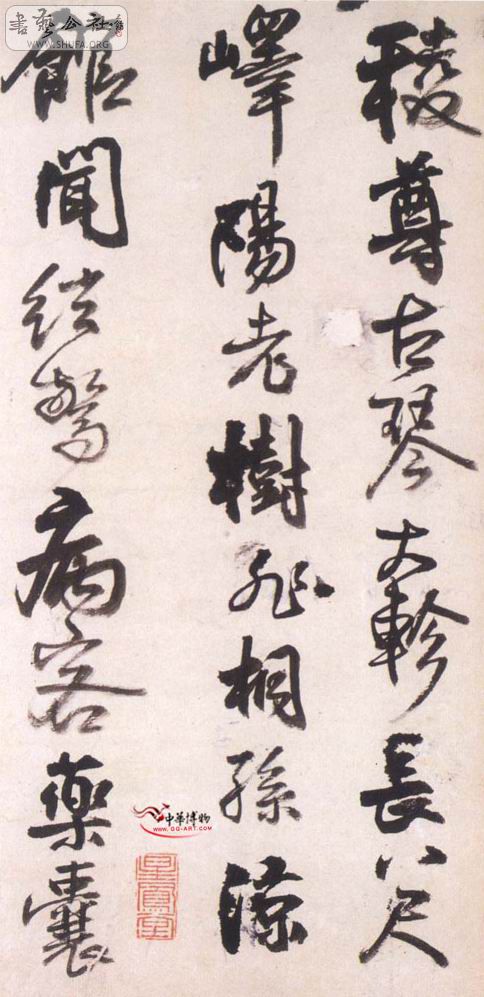 稜尊古琴大軫長八尺
嶧陽老樹非桐孫涼
館聞絃驚病客藥囊
書藝公社
WWW.SHUFA.ORG
中華博物
www.GG-ART.com